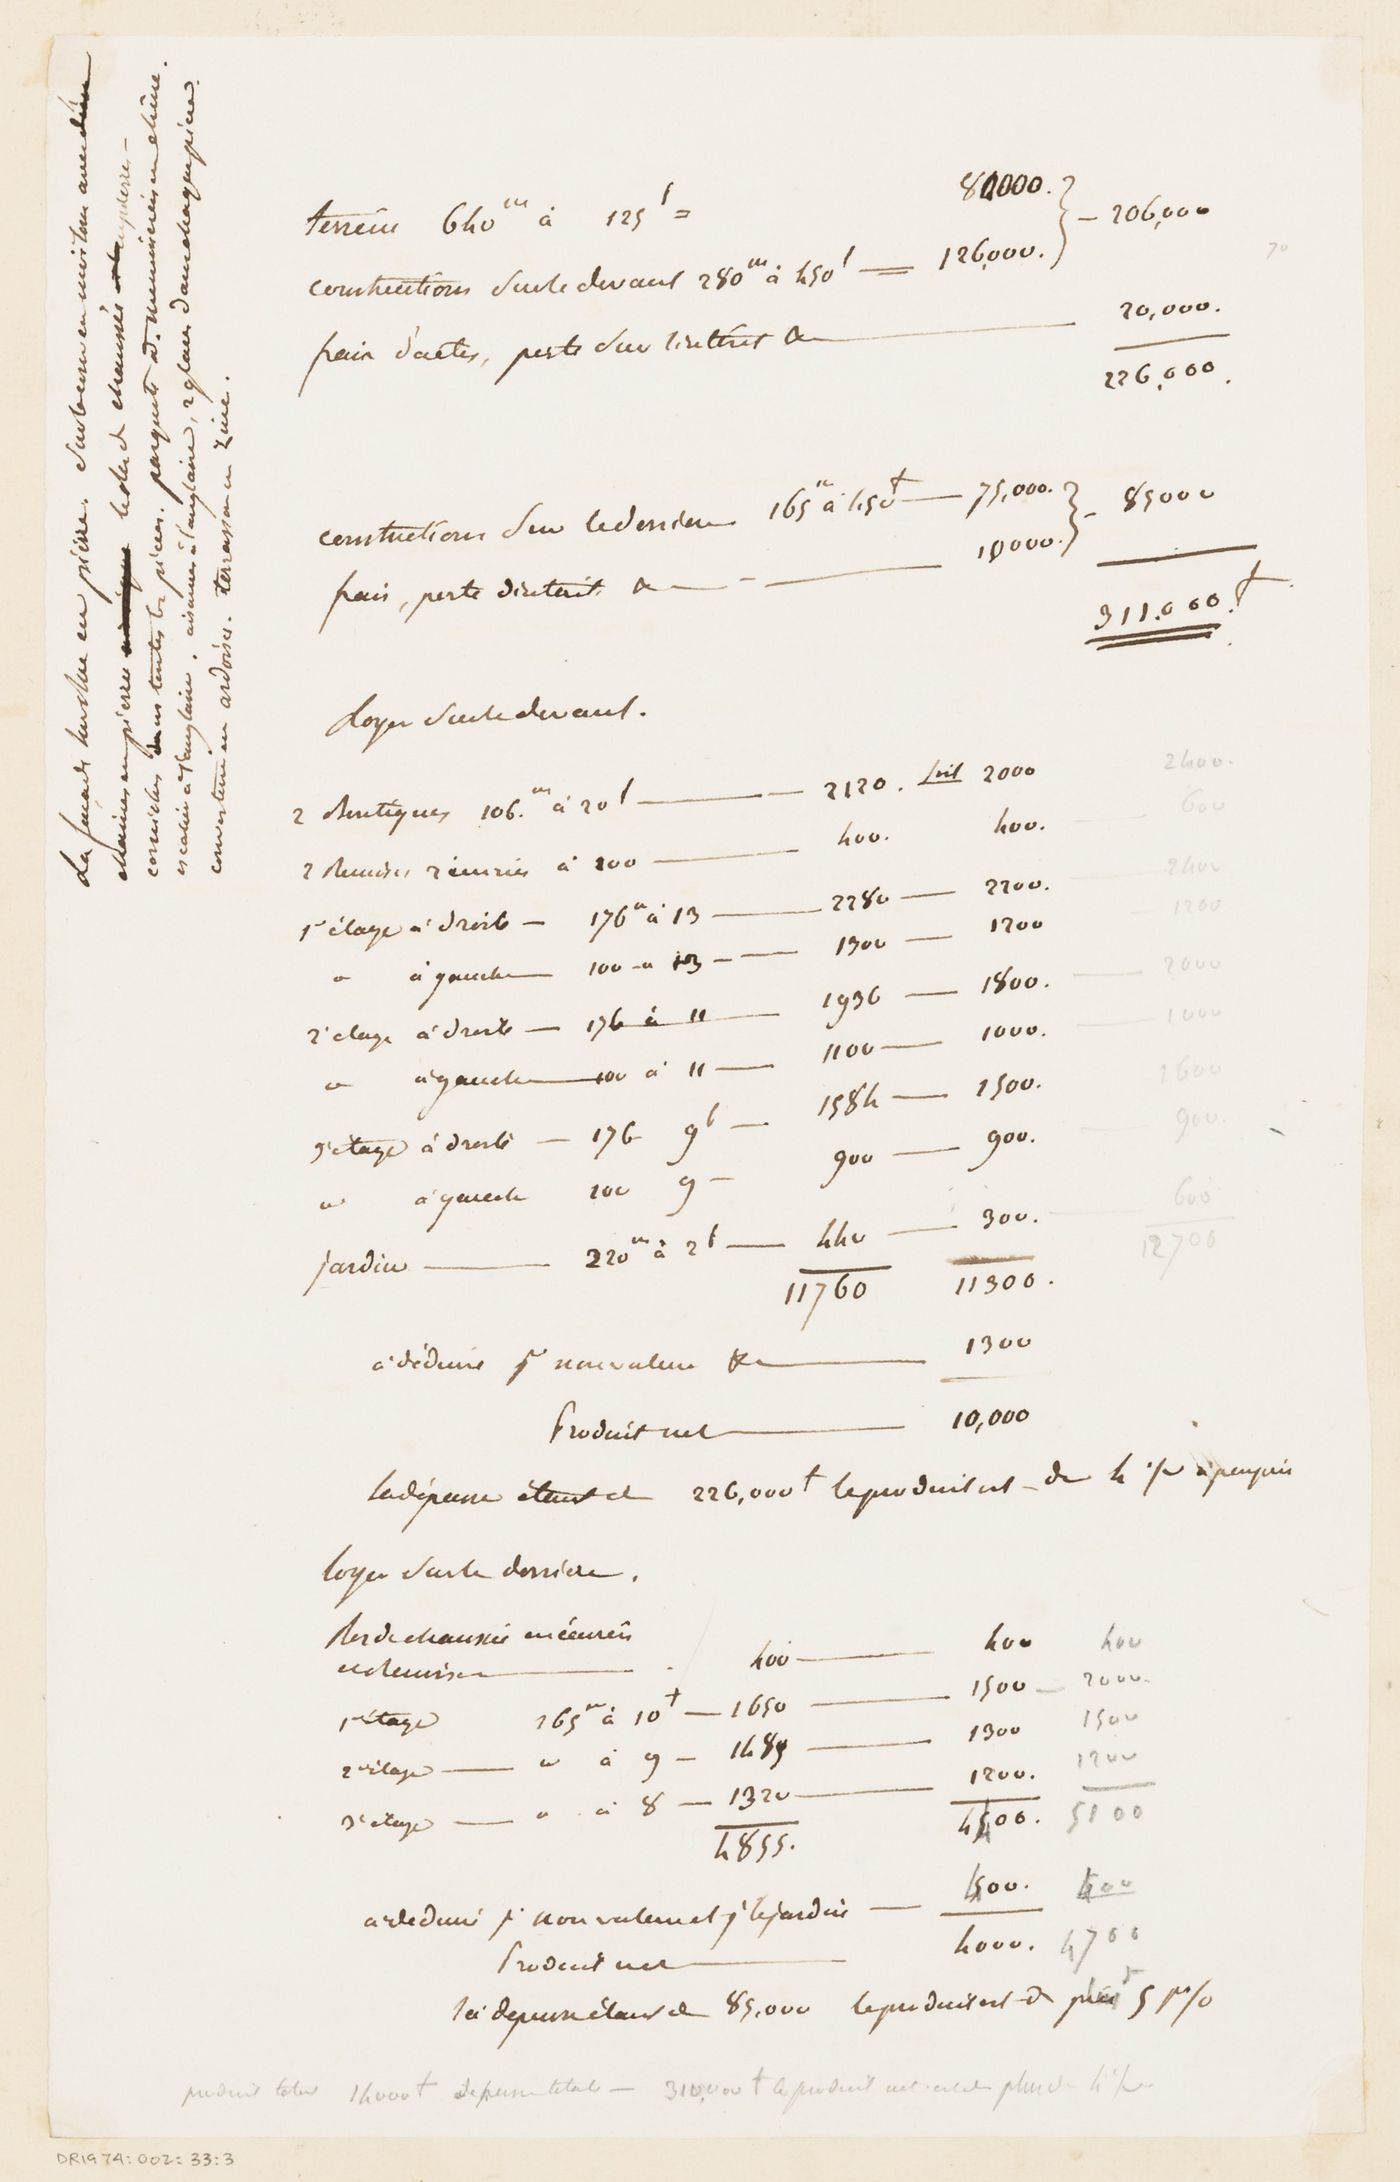 La façade sur la rue en pierre. sur la cour en moilons avec
chaines en pierre le rez de chaussée en pierre -
corniches dans toutes les pièces. parquets et menuiserie en chêne.
escalier à l'anglaise. aisances à l'anglaise, 2 glaces dans chaque pièce
couverture en ardoises. terrasse en zinc.
terrein 640m à 125f = 80000. } - 206,000
constructions sur le devant 280m à 450f = 126,000.
70
frais d'actes, perte sur l'intérêt &a 20,000.
226,000.
constructions sur le derrière 165m à 450f — 75,000. } - 85000
frais, perte d'intérêt &a — 10000.
311.000f.
Loyer sur le devant.
2 boutiques 106.m à 20f — 2120. soit 2000 2400.
2 remises 2 écuries à 200 — 400. 400. — 600
1er étage à droite — 176m à 13 — 2280 — 2200. — 2400
" à gauche — 100 à 13 — 1300 — 1200 — 1200
2e étage à droite — 176 à 11 — 1936 — 1800. — 2000
" à gauche — 100 à 11 — 1100 — 1000. — 1000
3e étage à droite — 176 9f — 1584 — 1500. 1600
" à gauche 100 9 — 900 — 900. — 900.
jardin — 220m à 2f — 440 — 300. — 600
11760 11300. 12700
à déduire pr non valeur &a — 1300
Produit net — 10,000
la dépense étant de 226,000f le produit est de 4 % à peu près
loyer sur le derrière.
Rez de chaussée en écuries
et remises — 400 — 400 400
1er étage 165m à 10f — 1650 — 1500 — 2000.
2e étage — " à 9 — 1485 — 1300 1500
3e étage — " à 8 — 1320 — 1200. 1200
4855. 4400. 5100
à déduire pr non valeur et pr le jardin — 400. 400
Produit net — 4000. 4700
la dépense étant de 85,000 le produit est de 5 p%
produit total 14000f dépense totale — 310,000f le produit net est de plus de 4 %
DR1974:002:33:3